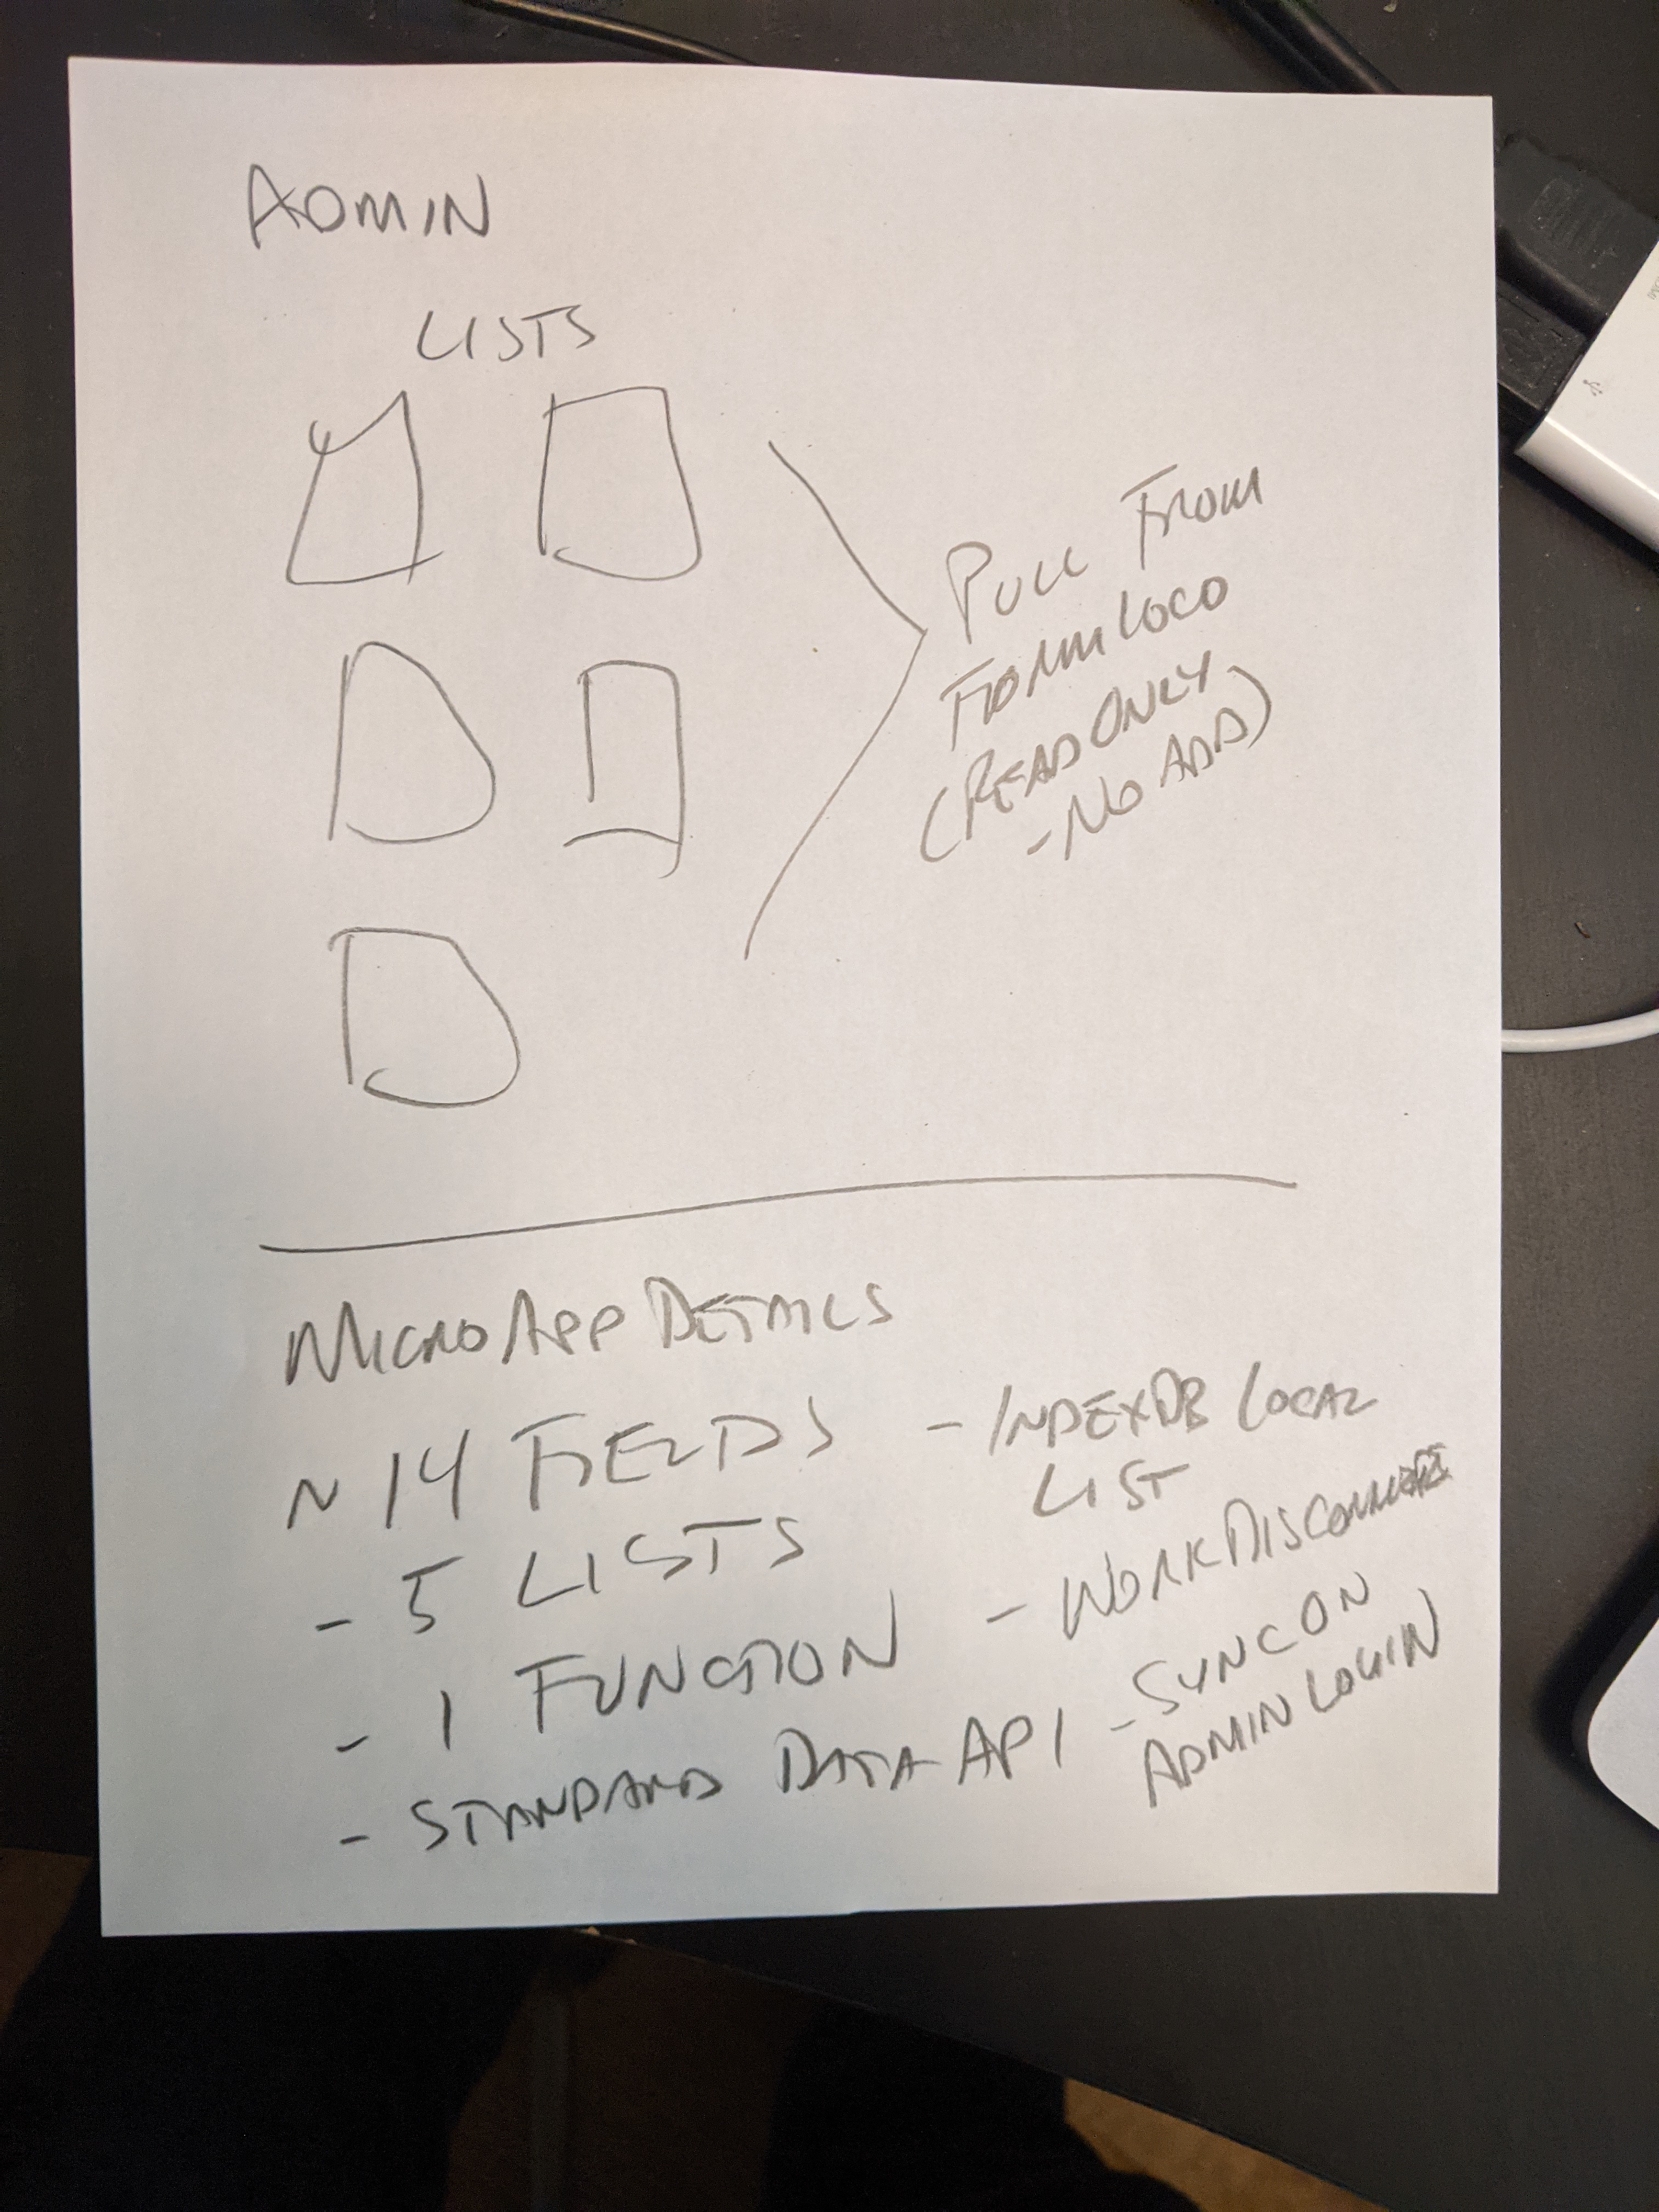 ADMIN
LISTS
PULL FROM
FORMLOCO
(READ ONLY
- NO ADD)
MICRO APP DETAILS
~ 14 FIELDS
- 5 LISTS
- 1 FUNCTION
- STANDARD DATA API
- INDEXDB LOCAL
LIST
- WORK DISCONNECTED
- SYNC ON
ADMIN LOGIN